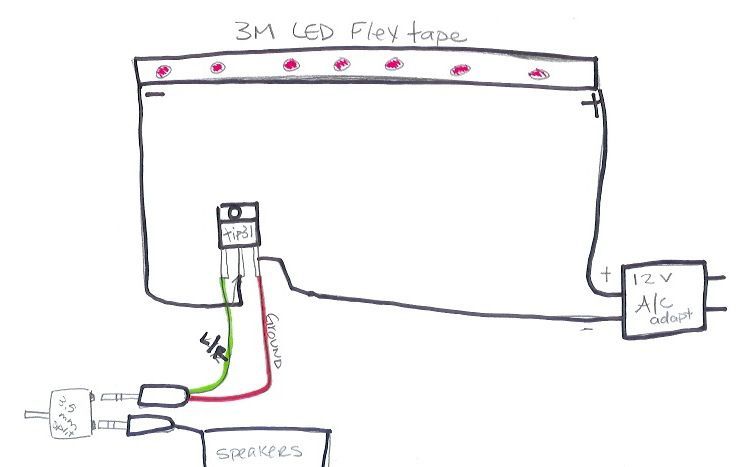 3M LED Flex tape
−
+
tip31
+
12V
A/C
adapt
−
L/R
GROUND
3.5
mm
split
speakers